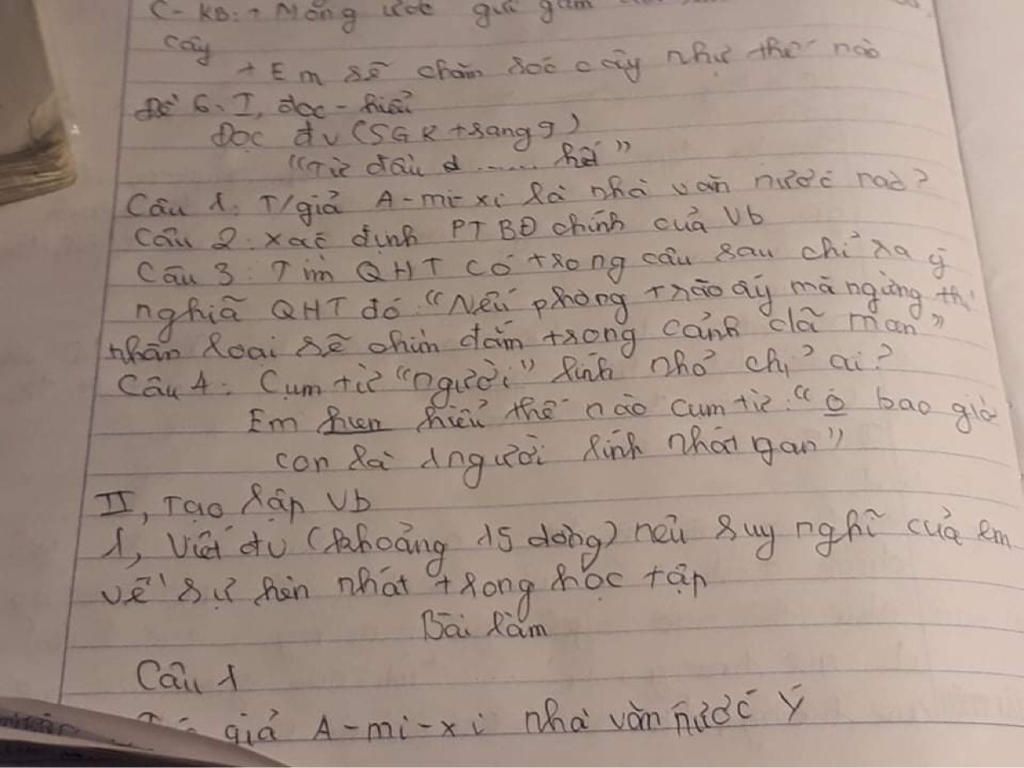 C- KB: + Mong ước gửi gắm
cây
+ Em sẽ chăm sóc cây như thế nào
Đề 6. I, đọc - hiểu
Đọc đv (SGK trang 9)
"Từ đầu đ...... hết"
Câu 1. T/giả A-mi-xi là nhà văn nước nào?
Câu 2. Xác định PTBĐ chính của Vb
Câu 3. Tìm QHT có trong câu sau chỉ ra ý
nghĩa QHT đó "Nếu phong trào ấy mà ngừng thì
nhân loại sẽ chìm đắm trong cảnh dã man"
Câu 4. Cụm từ "người" lính nhỏ chỉ ai?
Em hiểu thế nào cụm từ: "Ò bao giờ
con là 1 người lính nhát gan"
II, Tạo lập Vb
1, Viết đv (khoảng 15 dòng) nêu suy nghĩ của em
về sự hèn nhát trong học tập
Bài làm
Câu 1
giả A-mi-xi nhà văn nước Ý